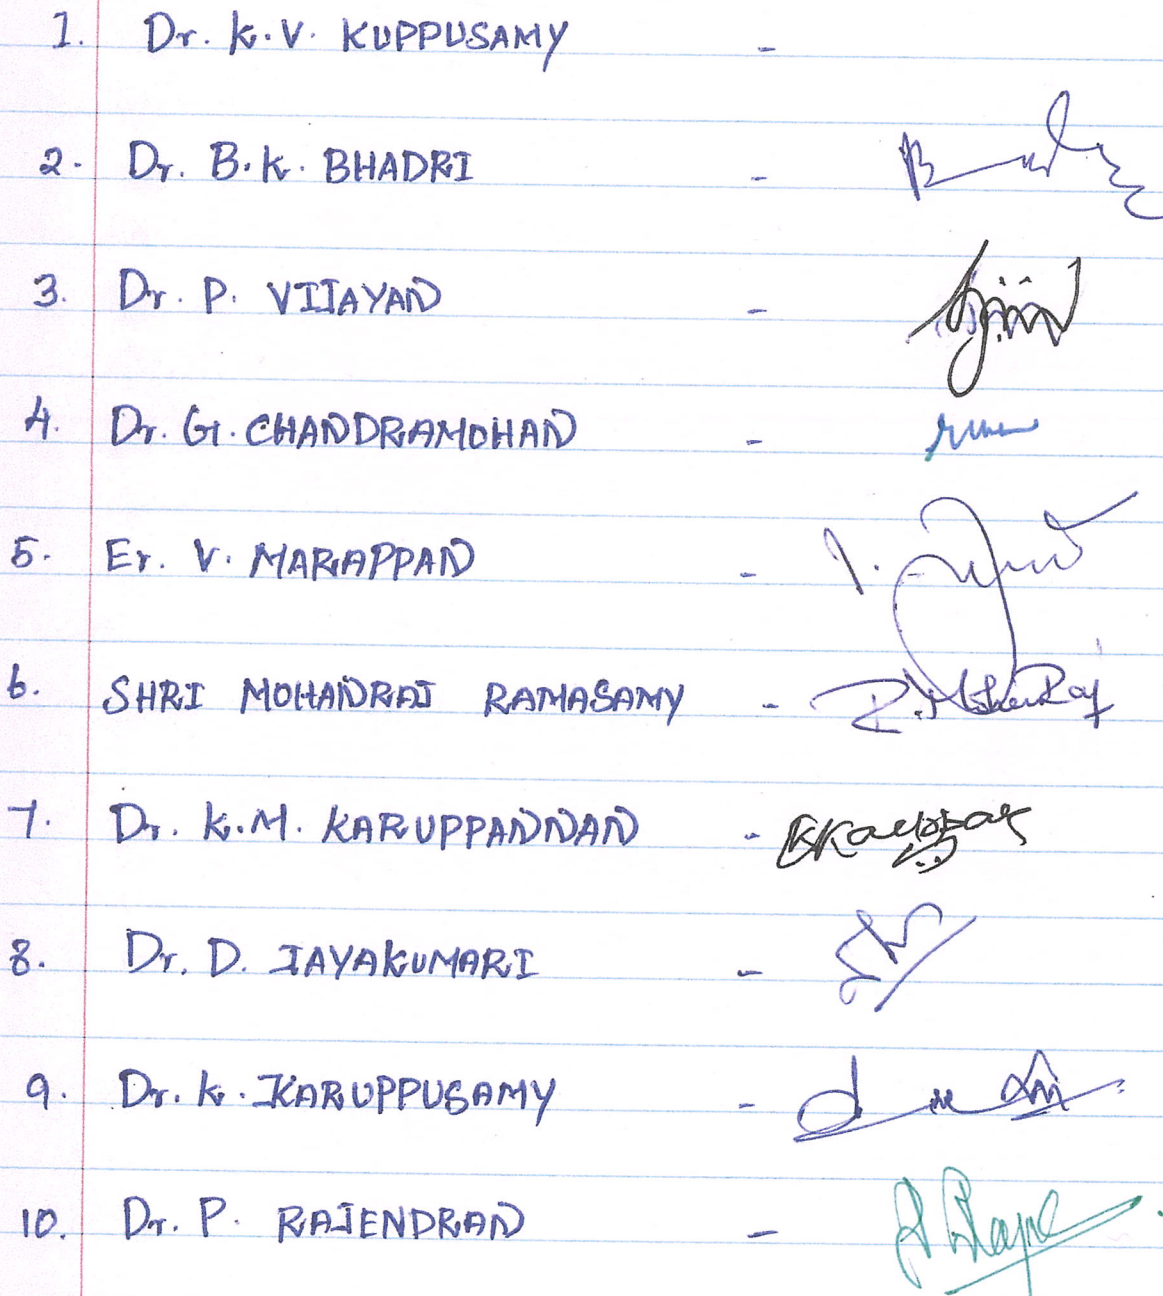 1. Dr. K.V. KUPPUSAMY -
2. Dr. B.K. BHADRI -
3. Dr. P. VIJAYAN -
4. Dr. G. CHANDRAMOHAN -
5. Er. V. MARAPPAN -
6. SHRI MOHANRAJ RAMASAMY -
7. Dr. K.M. KARUPPANNAN -
8. Dr. D. JAYAKUMARI -
9. Dr. K. KARUPPUSAMY -
10. Dr. P. RAJENDRAN -